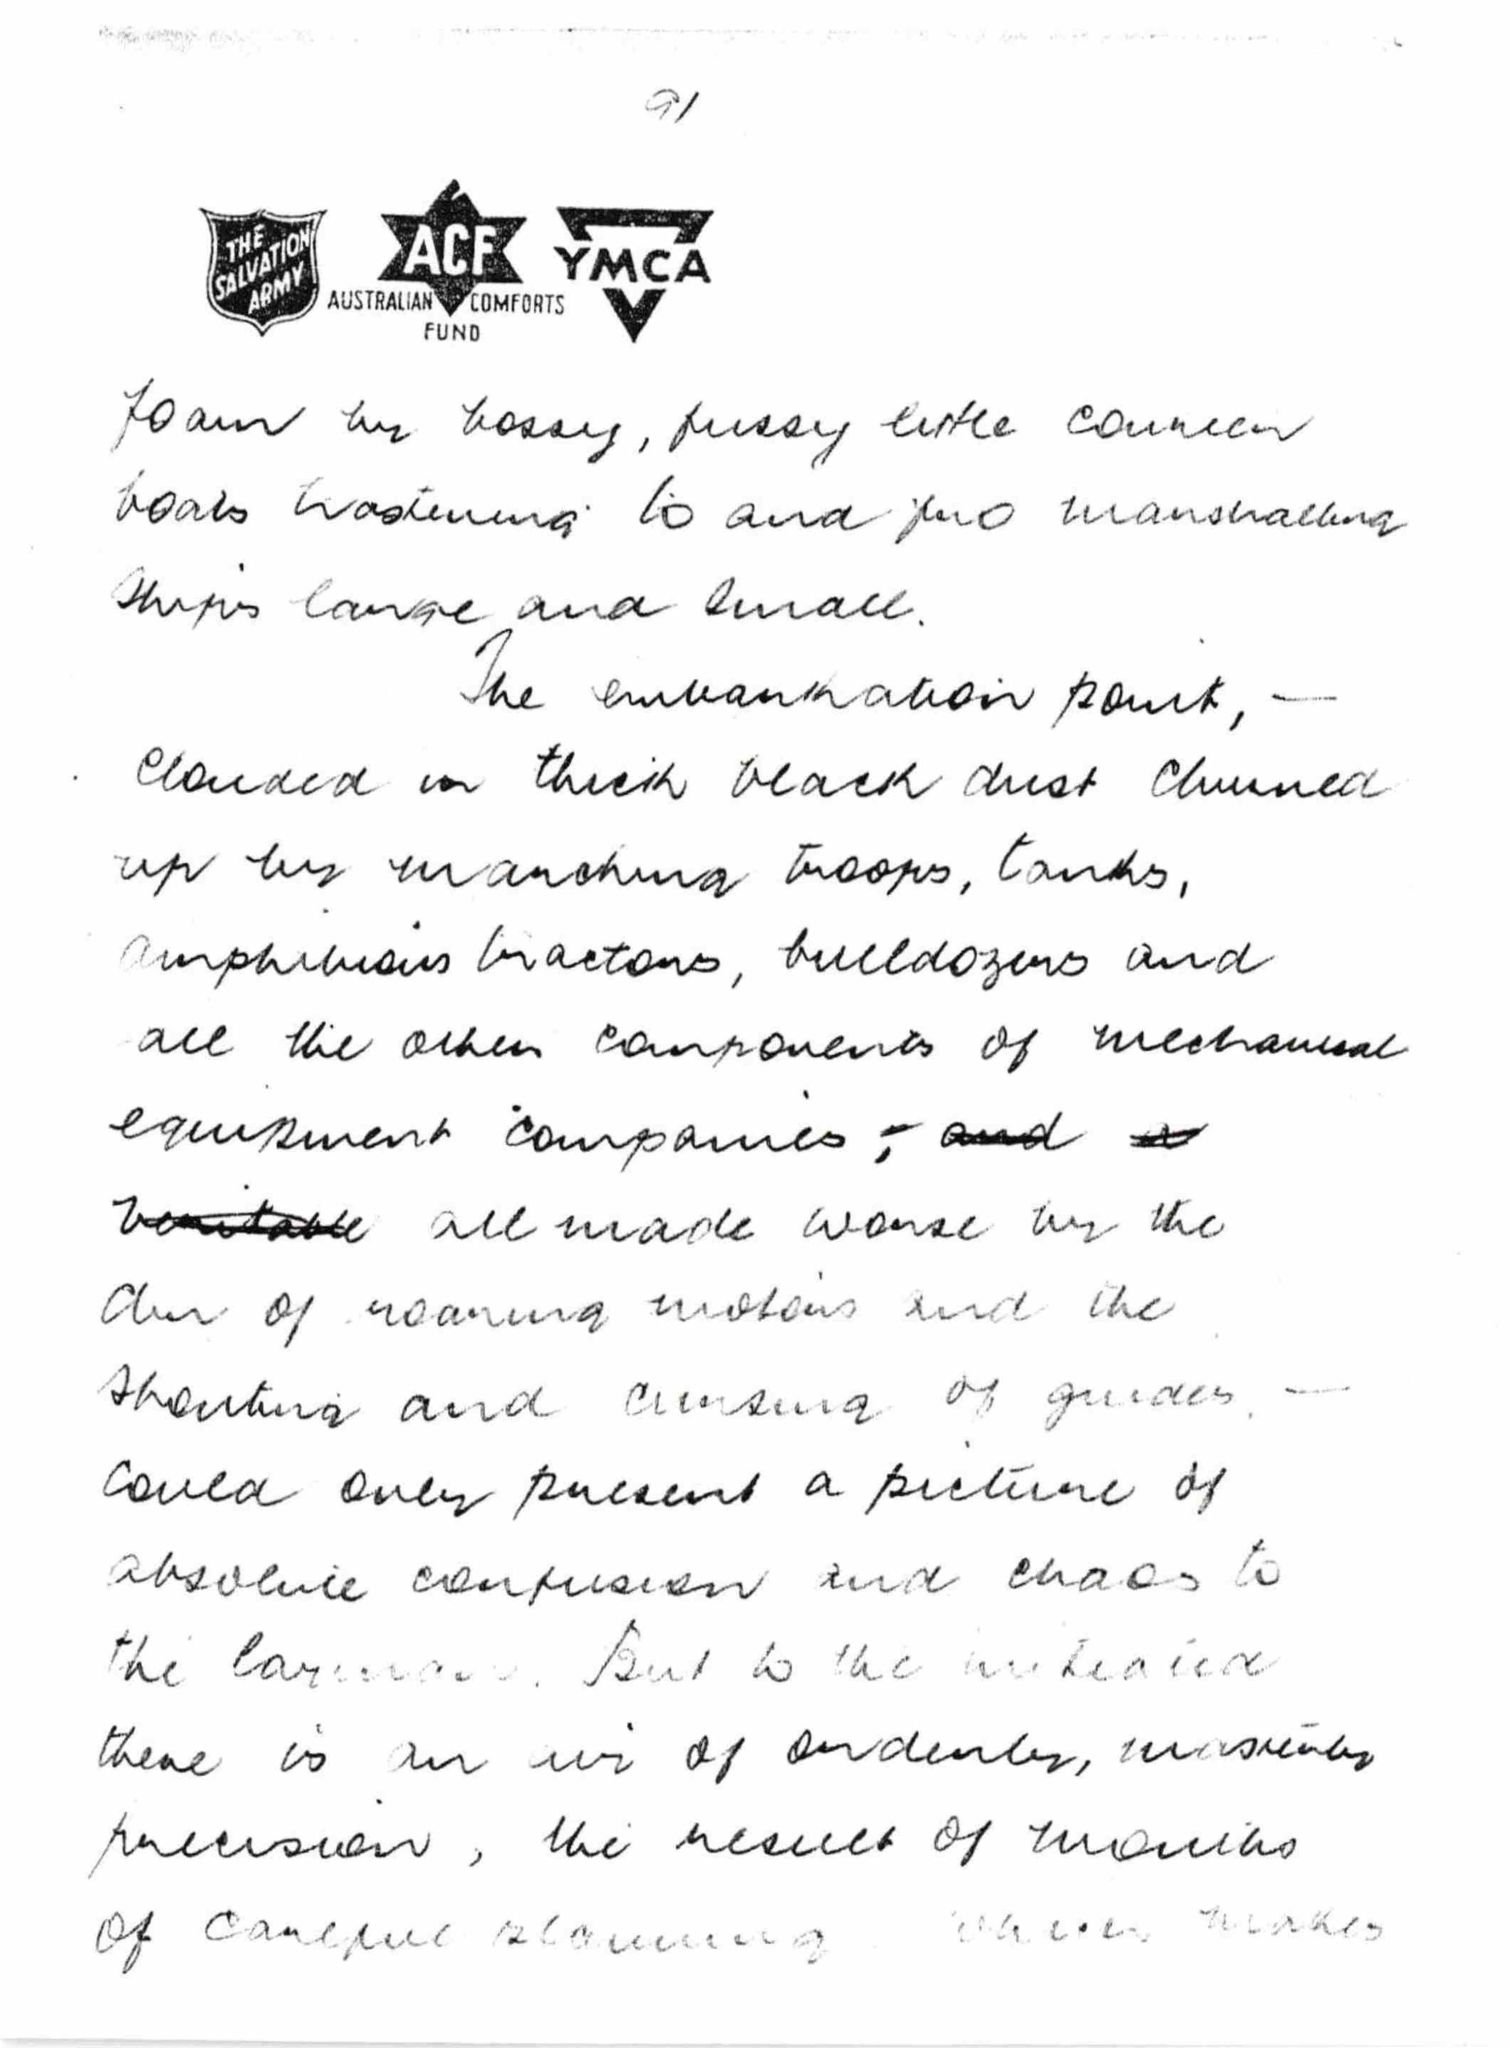 91
THE SALVATION ARMY
ACF
AUSTRALIAN COMFORTS
FUND
YMCA
foam by bossy, fussy little courier
boats hastening to and fro marshalling
ships large and small.
The embarkation point, —
clouded in thick black dust churned
up by marching troops, tanks,
amphibious tractors, bulldozers and
all the other components of mechanical
equipment companies; and a
veritable all made worse by the
din of roaring motors and the
shouting and cursing of guides, —
could only present a picture of
absolute confusion and chaos to
the layman. But to the initiated
there is an air of orderly, masterly
precision, the result of months
of careful planning which makes